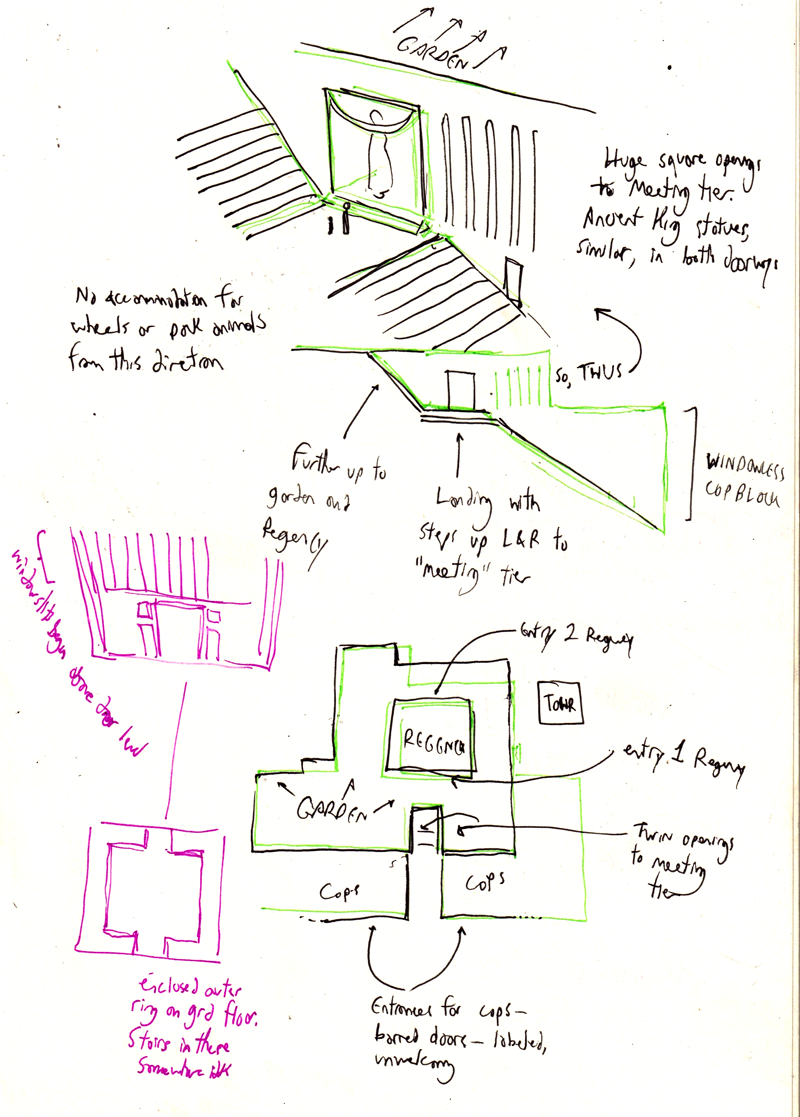 GARDEN
Huge square openings
to Meeting tier.
Ancient King statues,
similar, in both doorways
No accommodation for
wheels or pack animals
from this direction
so, THUS
WINDOWLESS
COP BLOCK
Further up to
garden and
Regency
Landing with
steps up L&R to
"meeting" tier
window slits begin
above door level
Entry 2 Regency
TOWER
REGENCY
entry 1 Regency
GARDEN
Twin openings
to meeting
tier
Cops
Cops
Entrances for cops—
barred doors—labeled,
unwelcoming
enclosed outer
ring on grd floor.
Stairs in there
somewhere idk